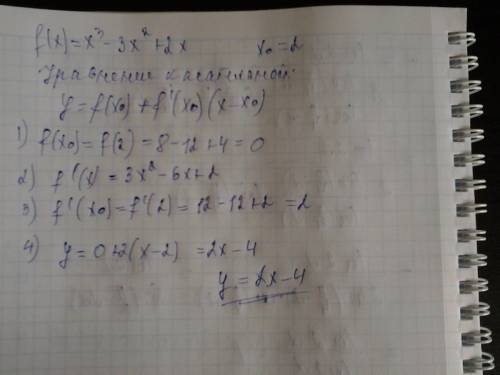 f(x)=x³-3x²+2x x₀=2
Уравнение касательной:
y=f(x₀)+f'(x₀)(x-x₀)
1) f(x₀)=f(2)=8-12+4=0
2) f'(x)=3x²-6x+2
3) f'(x₀)=f'(2)=12-12+2=2
4) y=0+2(x-2)=2x-4
y=2x-4